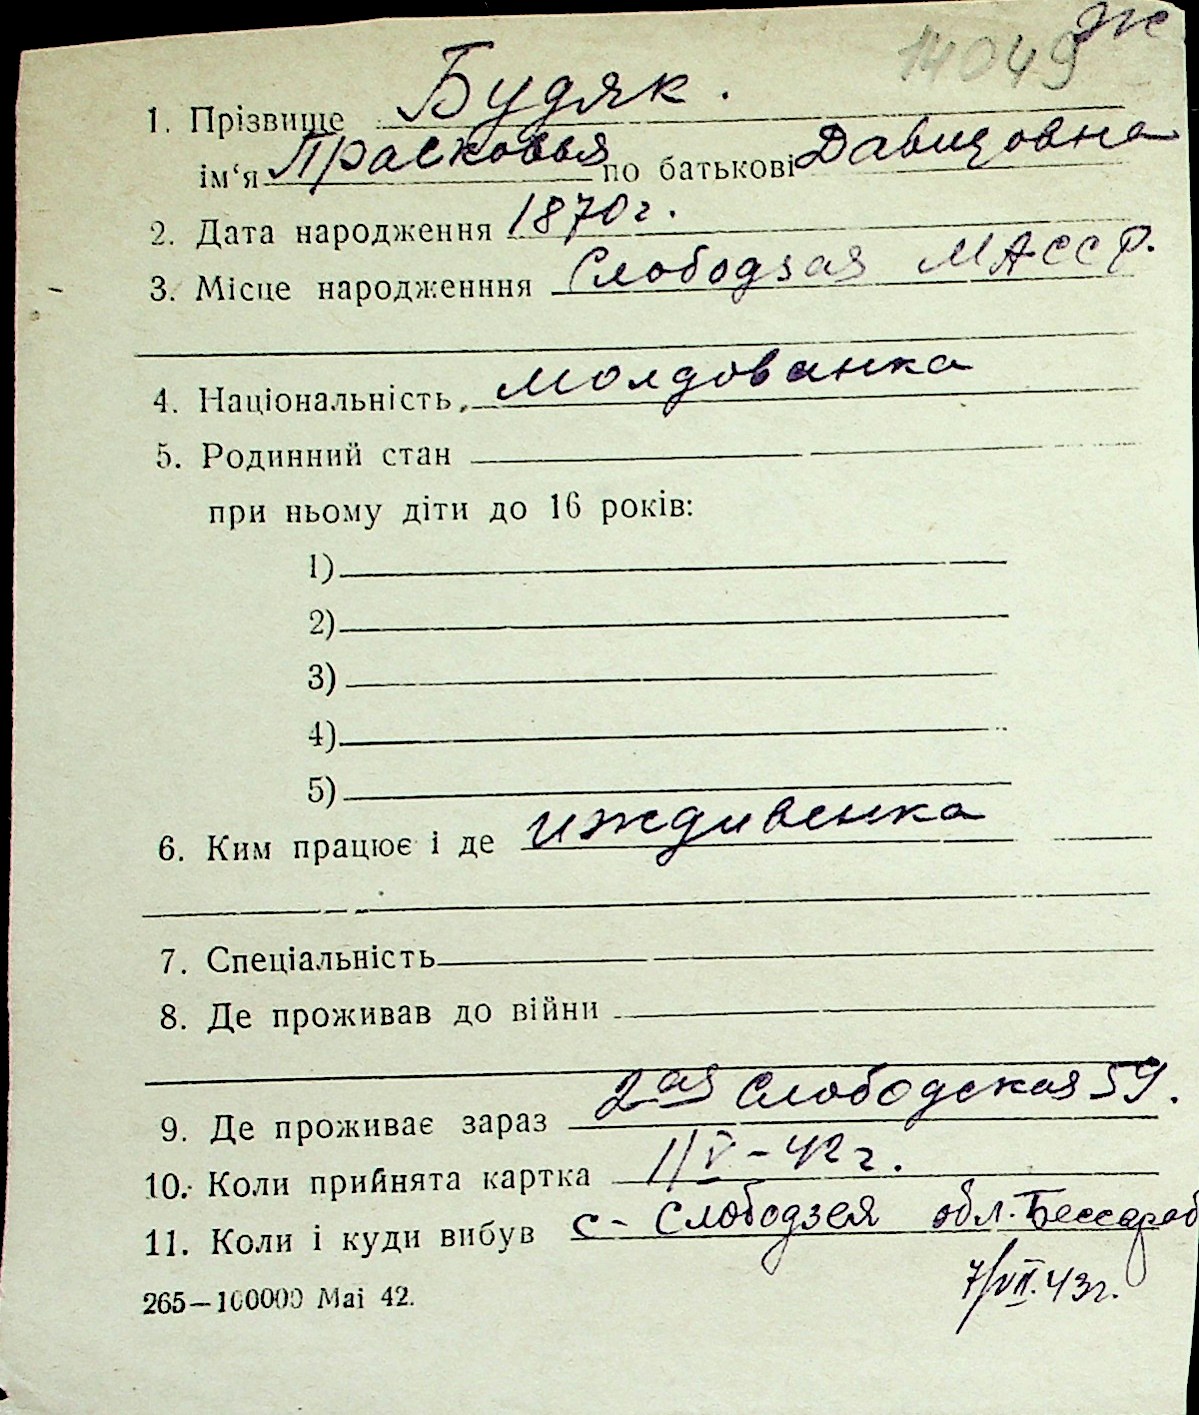 14049 Ж
1. Прізвище Будяк.
ім‘я Прасковья по батькові Давидовна
2. Дата народження 1870 г.
3. Місце народженння Слободзая МАССР.
4. Національність, молдованка
5. Родинний стан
при ньому діти до 16 років:
1)
2)
3)
4)
5)
6. Ким працює і де иждивенка
7. Спеціальність
8. Де проживав до війни
9. Де проживає зараз 2ая Слободская 59.
10. Коли прийнята картка 1/V-42 г.
11. Коли і куди вибув с- Слободзея обл. Бессараб
7/VII.43г.
265—100000 Mai 42.